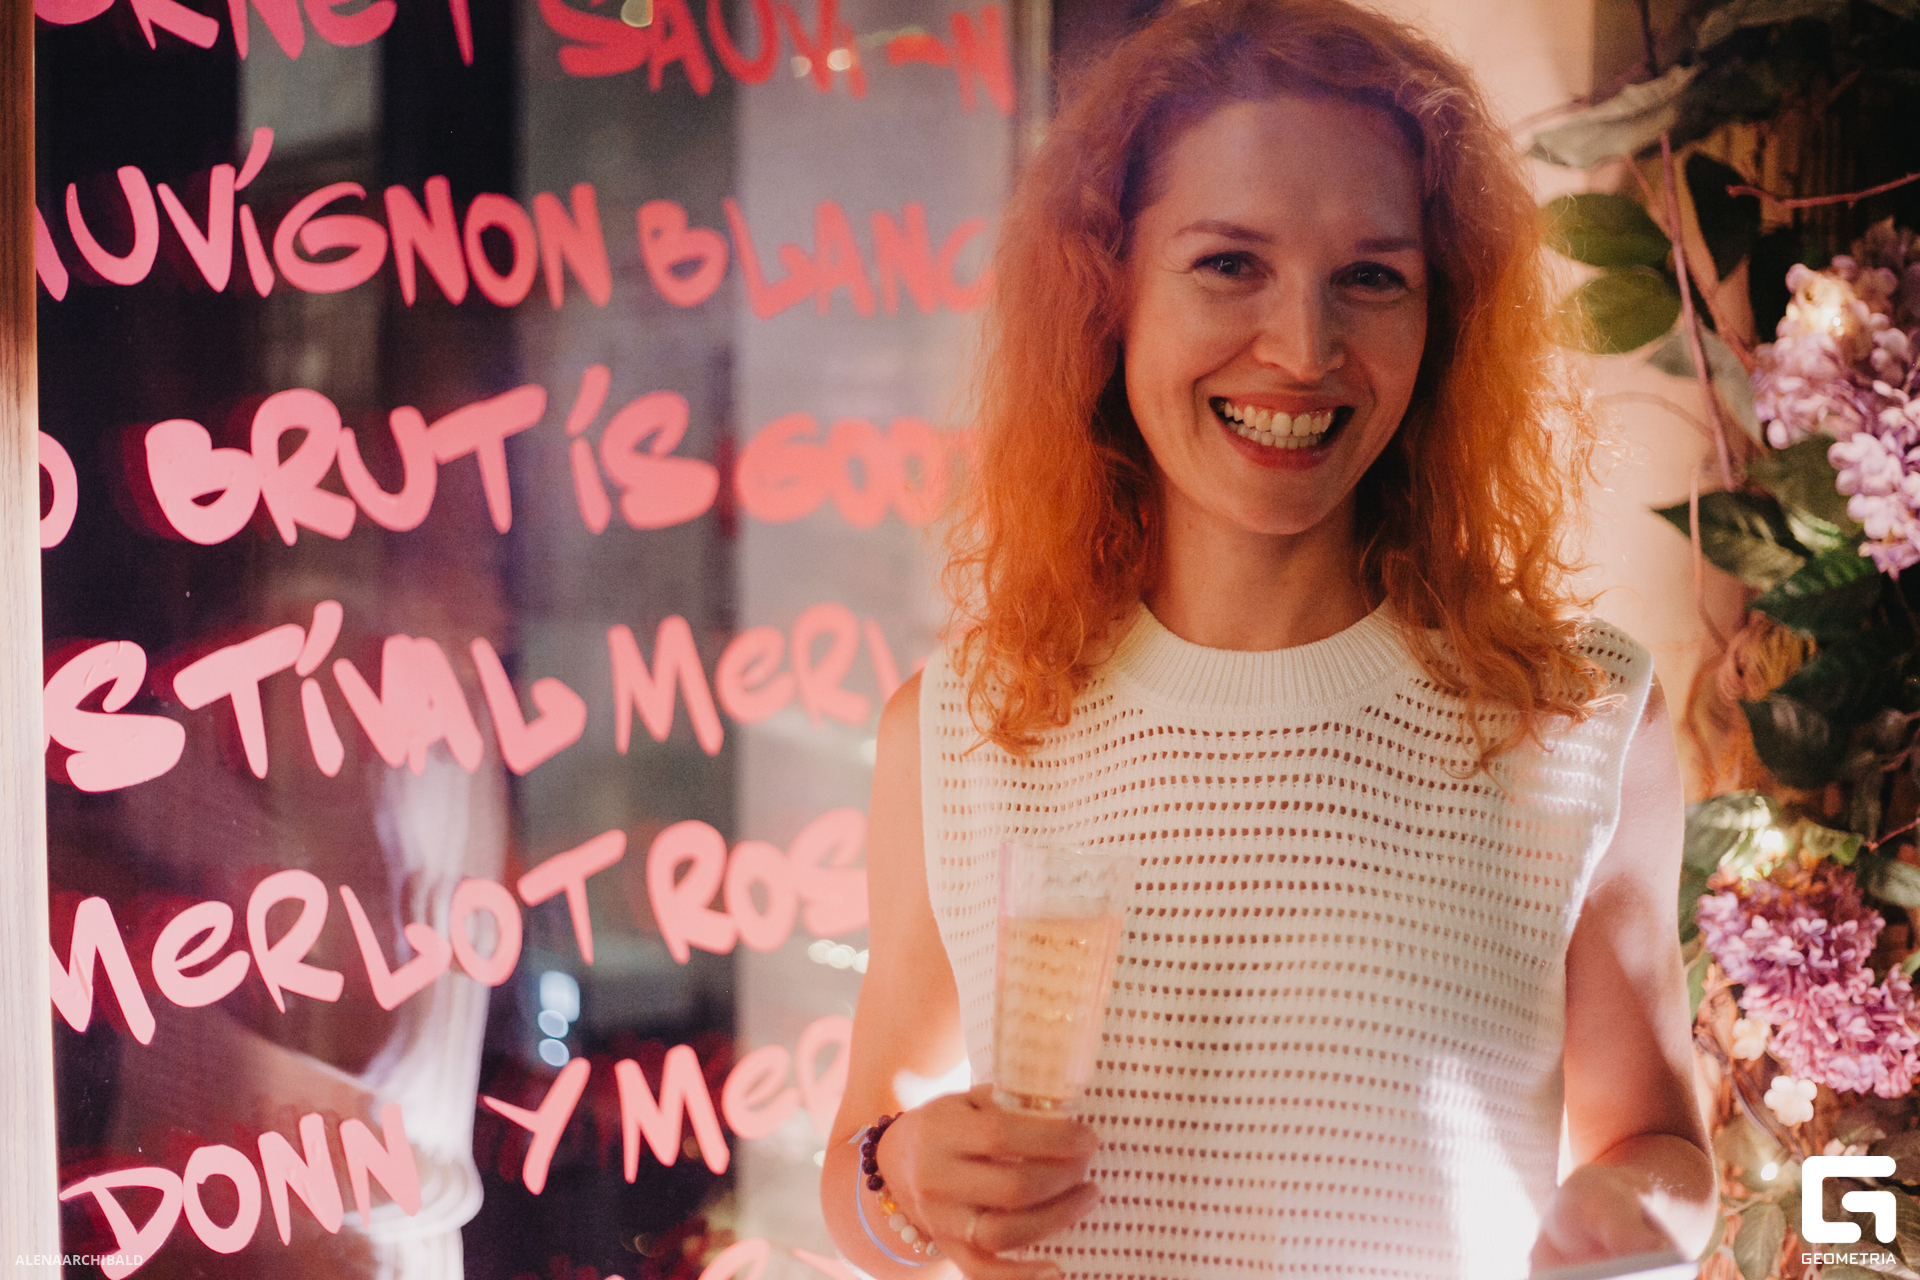 SAUVI-N
SAUVIGNON BLANC
BRUT IS GOOD
MERL
MERLOT ROS
DONN Y MER
ALENAARCHIBALD
GEOMETRIA